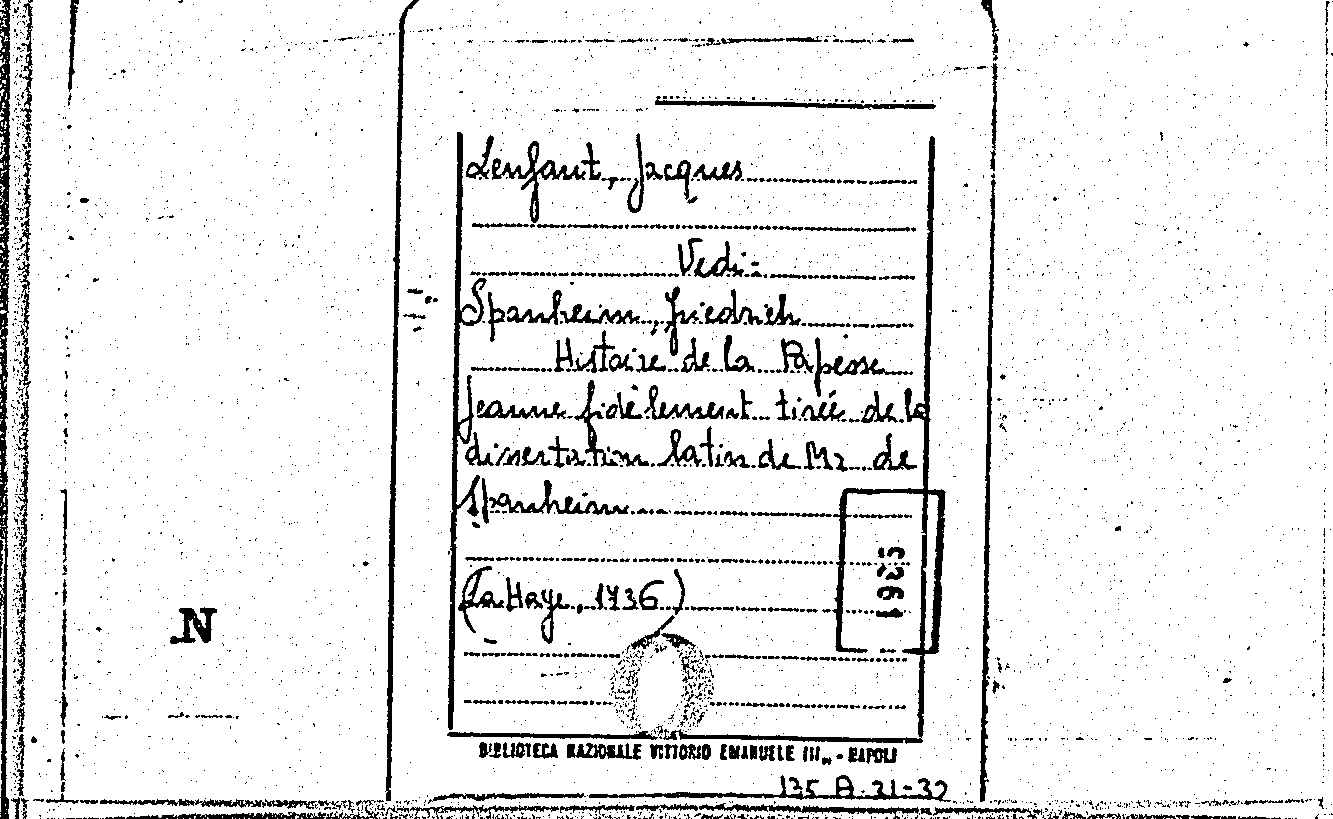 Lenfant, Jacques
Vedi:
Spanheim, Friedrich
Histoire de la Papesse
Jeanne fidélement tirée de la
dissertation latin de Mr de
Spanheim...
(La Haye, 1736)
5361
N
BIBLIOTECA NAZIONALE VITTORIO EMANUELE III,, - NAPOLI
135 A 31-32